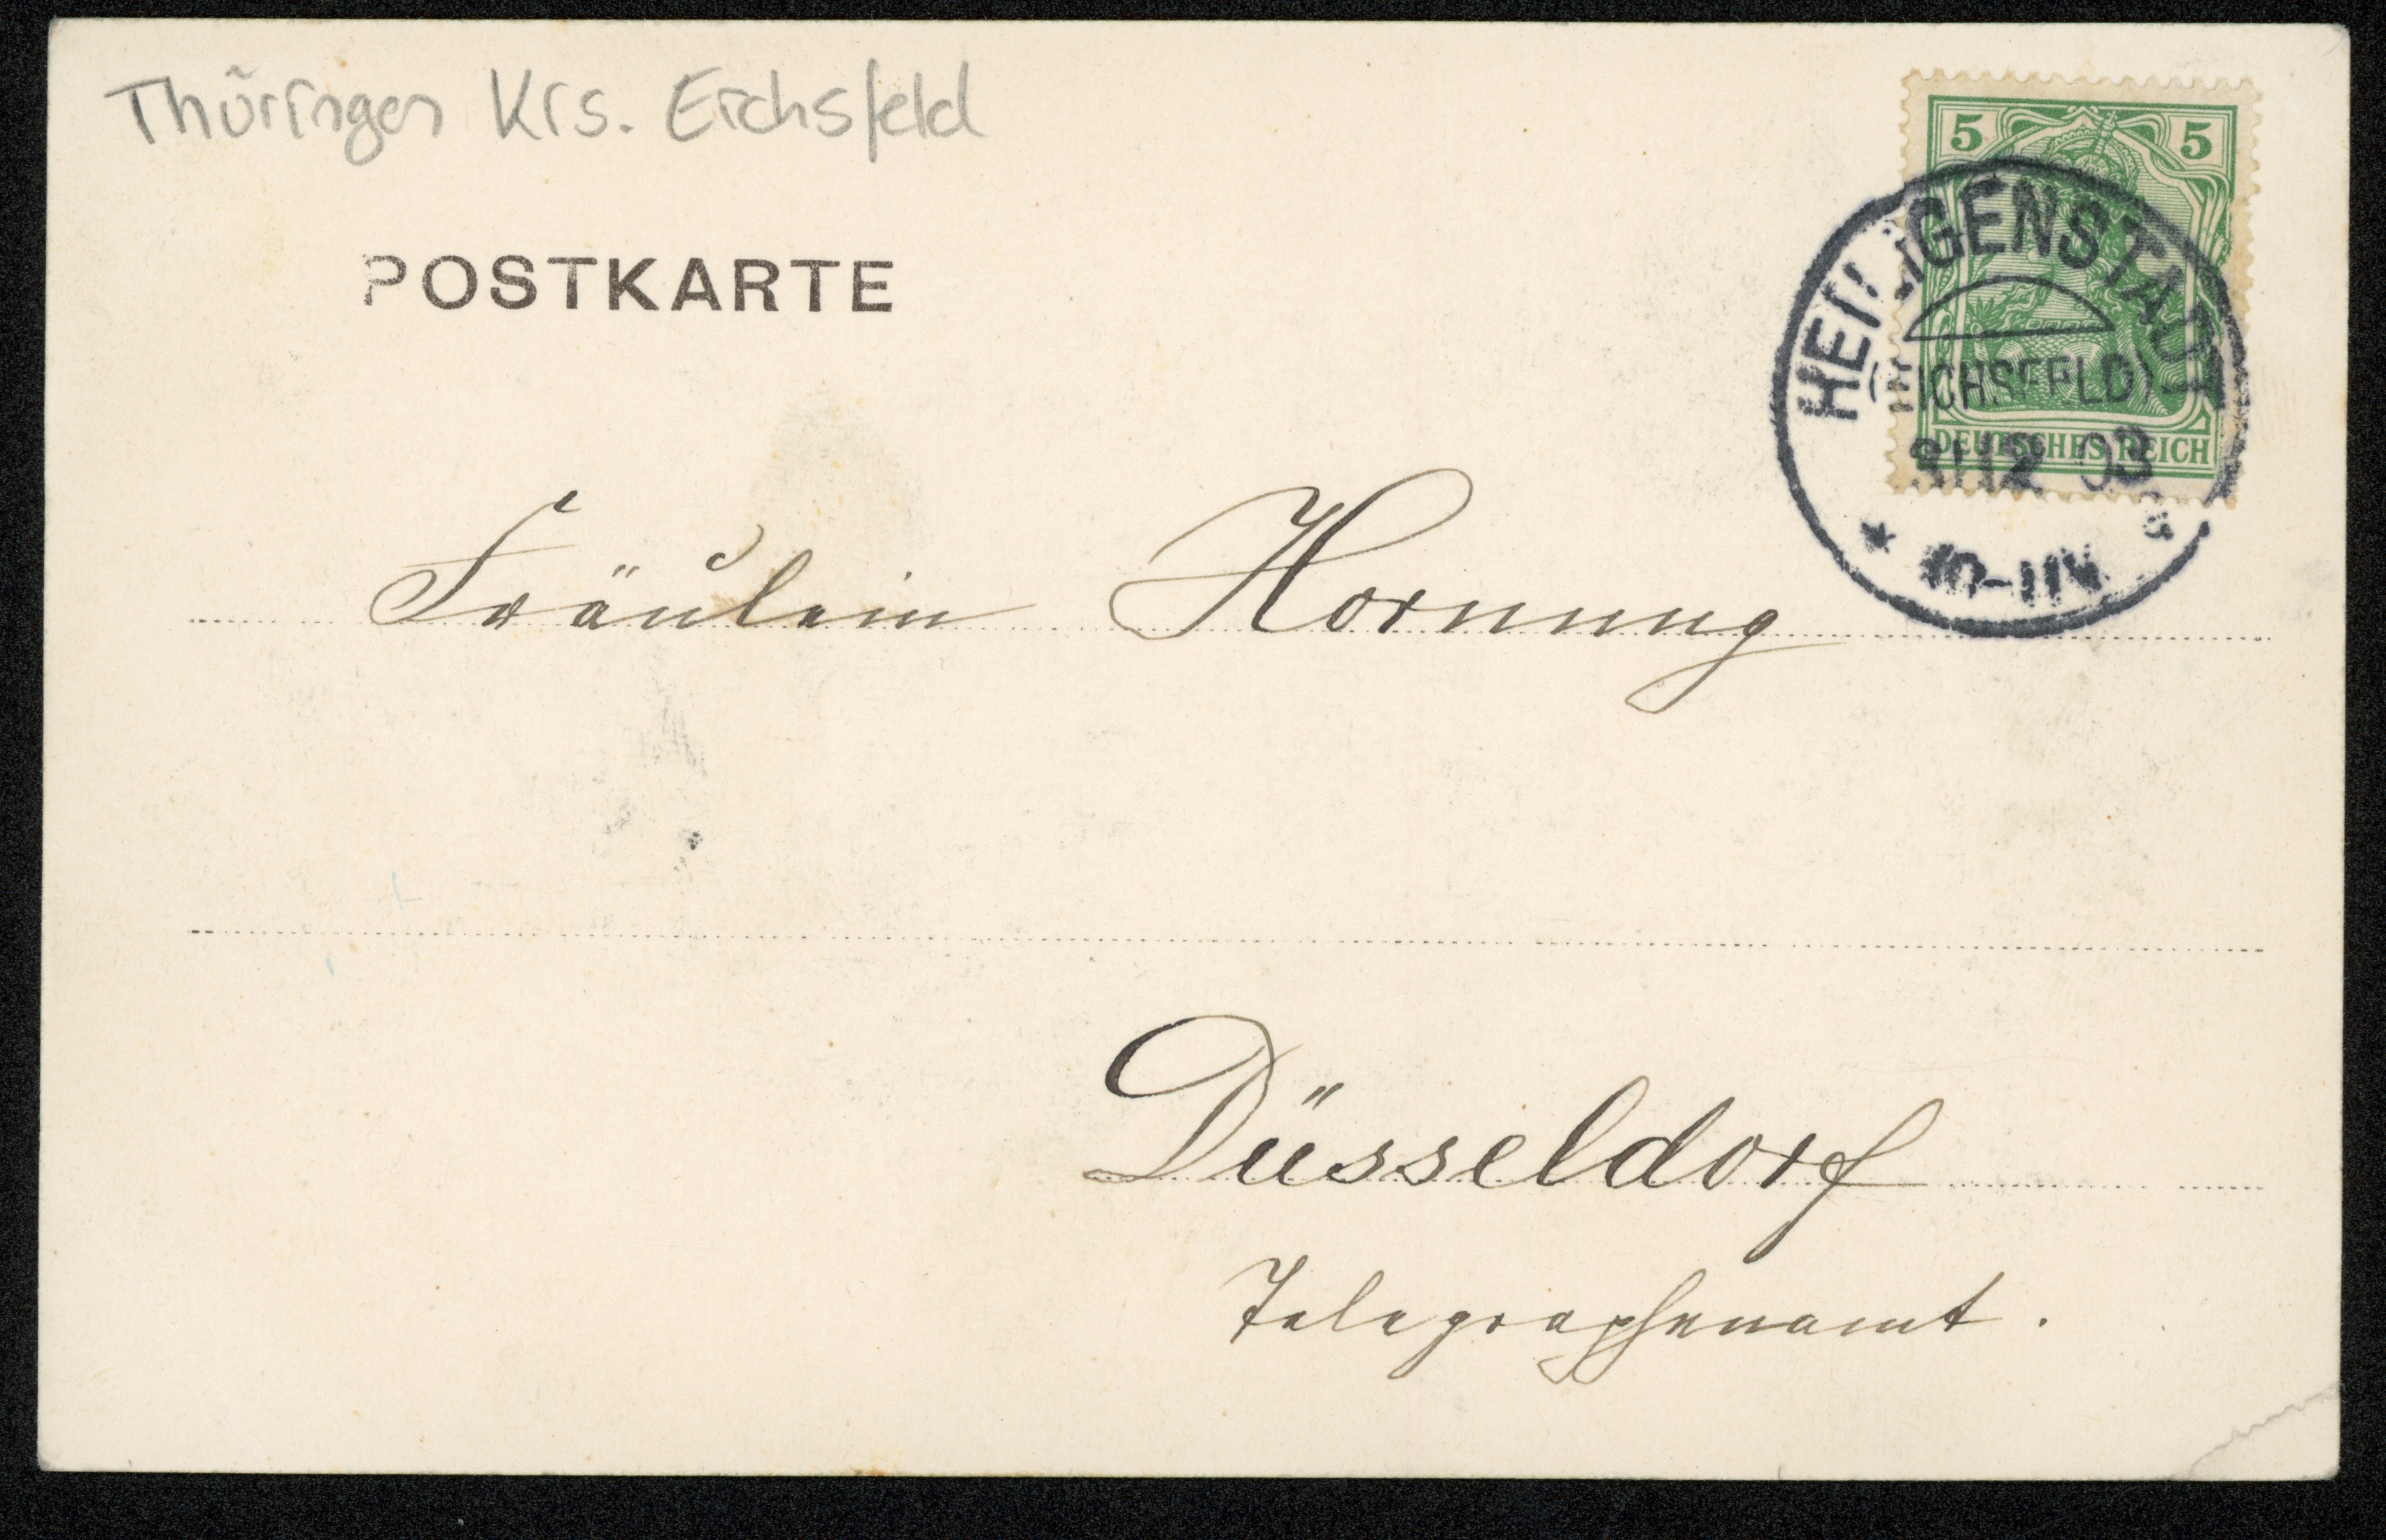 Thüringen Krs. Eichsfeld
POSTKARTE
5 5
HEILIGENSTADT
(EICHSFELD)
31.12 03
DEUTSCHES REICH
10-11N
Fräulein Hornung
Düsseldorf
Telegraphenamt.